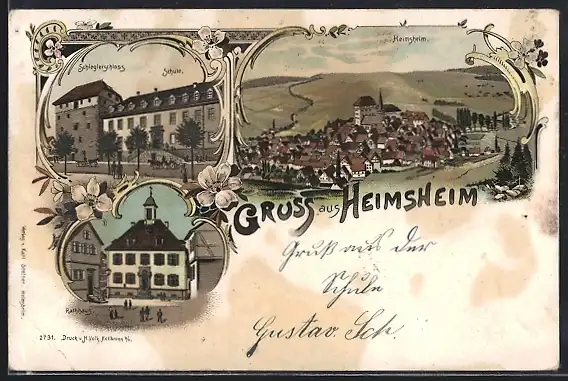 Schleglerschloss.
Schule.
Heimsheim.
GRUSS aus HEIMSHEIM
Gruß aus der
Schule
Gustav. Sch.
Rathhaus.
2731. Druck v. H. Volk, Heilbronn a/N.
Verlag v. Karl
Heimsheim.